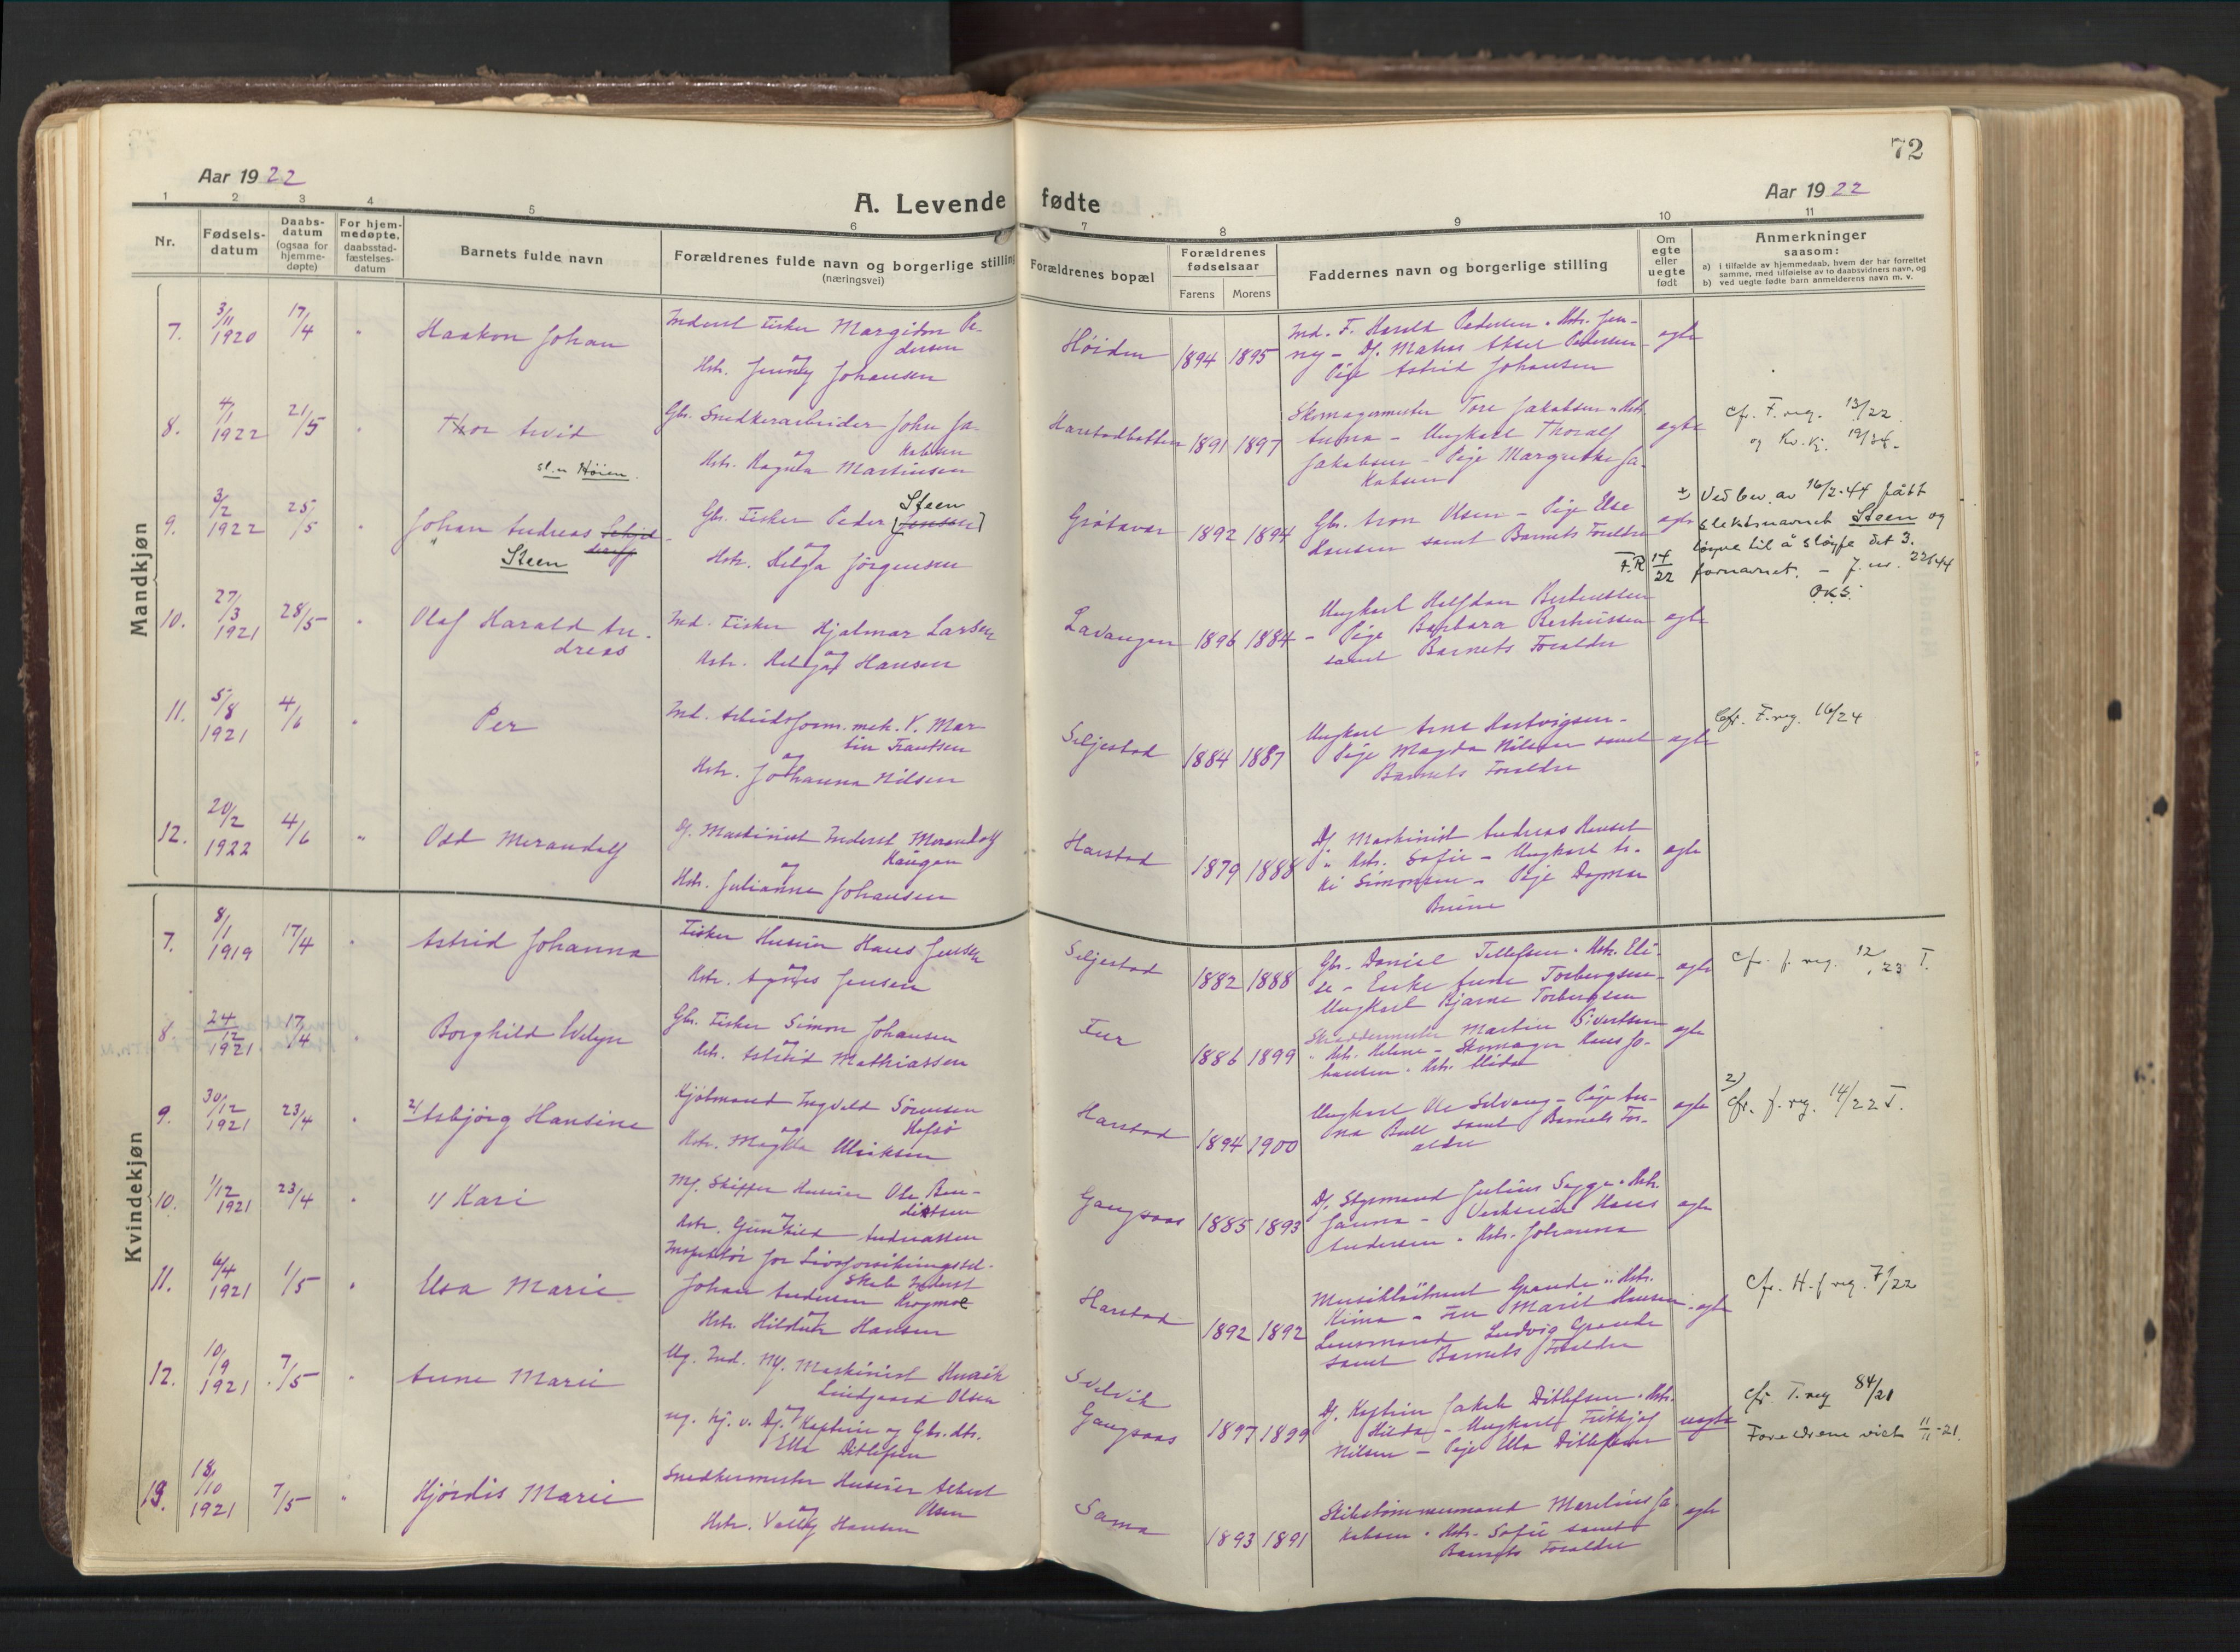 72
Aar 1922
A. Levende fødte
Aar 1922
1 2 3 4 5 6 7 8 9 10 11
Nr.
Fødsels-
datum
Daabs-
datum
(ogsaa for
hjemme-
døpte)
For hjem-
medøpte,
daabsstad-
fæstelses-
datum
Barnets fulde navn
Forældrenes fulde navn og borgerlige stilling
(næringsvei)
Forældrenes bopæl
Forældrenes
fødselsaar
Farens Morens
Faddernes navn og borgerlige stilling
Om
egte
eller
uegte
født
Anmerkninger
saasom:
a) i tilfælde av hjemmedaab, hvem der har forrettet
samme, med tilføielse av to daabsvidners navn, og
b) ved uegte fødte barn anmelderens navn m. v.
Mandkjøn
7. 3/11 1920 17/4 " Haakon Johan
Inderst Fisker Margidon Pe-
dersen
og
Hstr. Jenny Johansen
Høiden 1894 1895
Ind. F. Harald Pedersen . Hstr. Jen-
ny - Dj. Matros Aksel Pedersen
Pige Astrid Johansen
egte
8. 4/1 1922 21/5 " Thor Arvid
sl.n Høien
Gbr. Snedkerarbeider John Ja-
kobsen
og
Hstr. Ragna Martinsen
Harstadbotten 1891 1897
Skomagermester Tore Jakobsen . Hstr.
Anna - Ungkarl Thoralf
Jakobsen - Pige Margrethe Ja-
kobsen
egte
Cfr. F. reg. 13/22
og Kv. Kj.
9. 3/2 1922 25/5 " Johan Andreas
Steen
Gbr. Fisker Peder [Jensen]
Steen
og
Hstr. Helga Jørgensen
Grøtavær 1892 1894
Gbr. Aron Olsen - Pige Else
Hansen samt Barnets Forældre
egte
Ved bev. av 16/2-44 fått
slektsnavnet Steen og
løyve til å sløyfe det 3.
fornavnet. - J. nr. 221/44
O.K.S.
F.R 14/22
10. 27/3 1921 28/5 " Olaf Harald An-
dreas
Ind. Fisker Hjalmar Larsen
og
Hstr. Helga Hansen
Lavangen 1896 1884
Ungkarl Halfdan Berteussen
- Pige Barbara Berteussen
samt Barnets Forældre
egte
11. 5/8 1921 4/6 " Per
Ind. Arbeidsform. mek. V. Mar-
tin Frantsen
og
Hstr. Johanna Nilsen
Seljestad 1884 1887
Ungkarl Arne Hartvigsen -
Pige Magda Nilsen samt
Barnets Forældre
egte
Cfr. F. reg. 16/24
12. 20/2 1922 4/6 " Odd Merandolf
Dj. Maskinist Inderst Merandolf
Haugen
og
Hstr. Julianne Johansen
Harstad 1879 1888
Dj. Maskinist Andreas
" Hstr. Sofie - Ungkarl Ar-
ki Simonsen - Pige Dagmar
egte
Kvindekjøn
7. 8/1 1919 17/4 " Astrid Johanna
Fisker Huseier Hans Jensen
og
Hstr. Agnes Jensen
Seljestad 1882 1888
Gbr. Daniel Tellefsen . Hstr. Eli-
se - Enke Anne Torbergsen
Ungkarl Bjarne Torbergsen
egte
Cfr. f. reg. 12/23 T.
8 24/12 1921. 17/4 " Borghild Evelyn
Gbr. Fisker Simon Johansen
og
Hstr. Astrid Mathiassen
1886 1899
Skreddermester Martin Sivertsen
. Hstr. Helene - Skomager Hans Jo-
hansen . Hstr. Alida
egte
9. 30/12 1921 23/4 " 2/ Asbjørg Hansine
Kjøbmand Ingvald Sørensen
Hofsø
og
Hstr. Magda Ulriksen
Harstad 1894 1900
Ungkarl Ole Selvaag - Pige An-
na Bull samt Barnets For-
ældre
egte
2)
Cfr. f. reg. 14/22 T.
10. 1/12 1921 23/4 " 1/ Kari
Mf. Skipper Huseier Ole Ben-
diktsen
og
Hstr. Gunhild Andreassen
Gangsaas 1885 1893
Dj. Styrmand Julius Sagga . Hstr.
Janna - Hans
Andersen . Hstr. Johanna
egte
11. 6/4 1921 1/5 " Elsa Marie
Inspektør for Livsforsikringssel-
skab Inderst
Johan Andersen Krogmoe
og
Hstr. Hildur Hansen
Harstad 1892 1892
Musikløitnant Grande . Hstr.
- Fru Marit Hansen
Lensmand Ludvig Grande
samt Barnets Forældre
egte
Cfr. H. f reg. 71/22
12. 10/9 1921 7/5 " Anne Marie
Ug. Ind. Mf. Maskinist Henrik
Lindgaard Olsen
og
ug. hj. v. Dj. Kaptein og Gbr. dtr.
Ella Ditlefsen
Selvik
Gangsaas 1897 1899
Dj. Kaptein Jakob Ditlefsen . Hstr.
Hilda - Ungkarl Fritkjof
Nilsen - Pige Ella Ditlefsen
uegte
Cfr F. reg 84/21
Foreldrene viet 11/11-21.
13. 18/10 1921 7/5 " Hjørdis Marie
Snedkermester Huseier Albert
Olsen
og
Hstr. Valborg Hansen
Sama 1893 1891
Skibstømmermand Marelius Ja-
kobsen . Hstr. Sofie samt
Barnets Forældre
egte